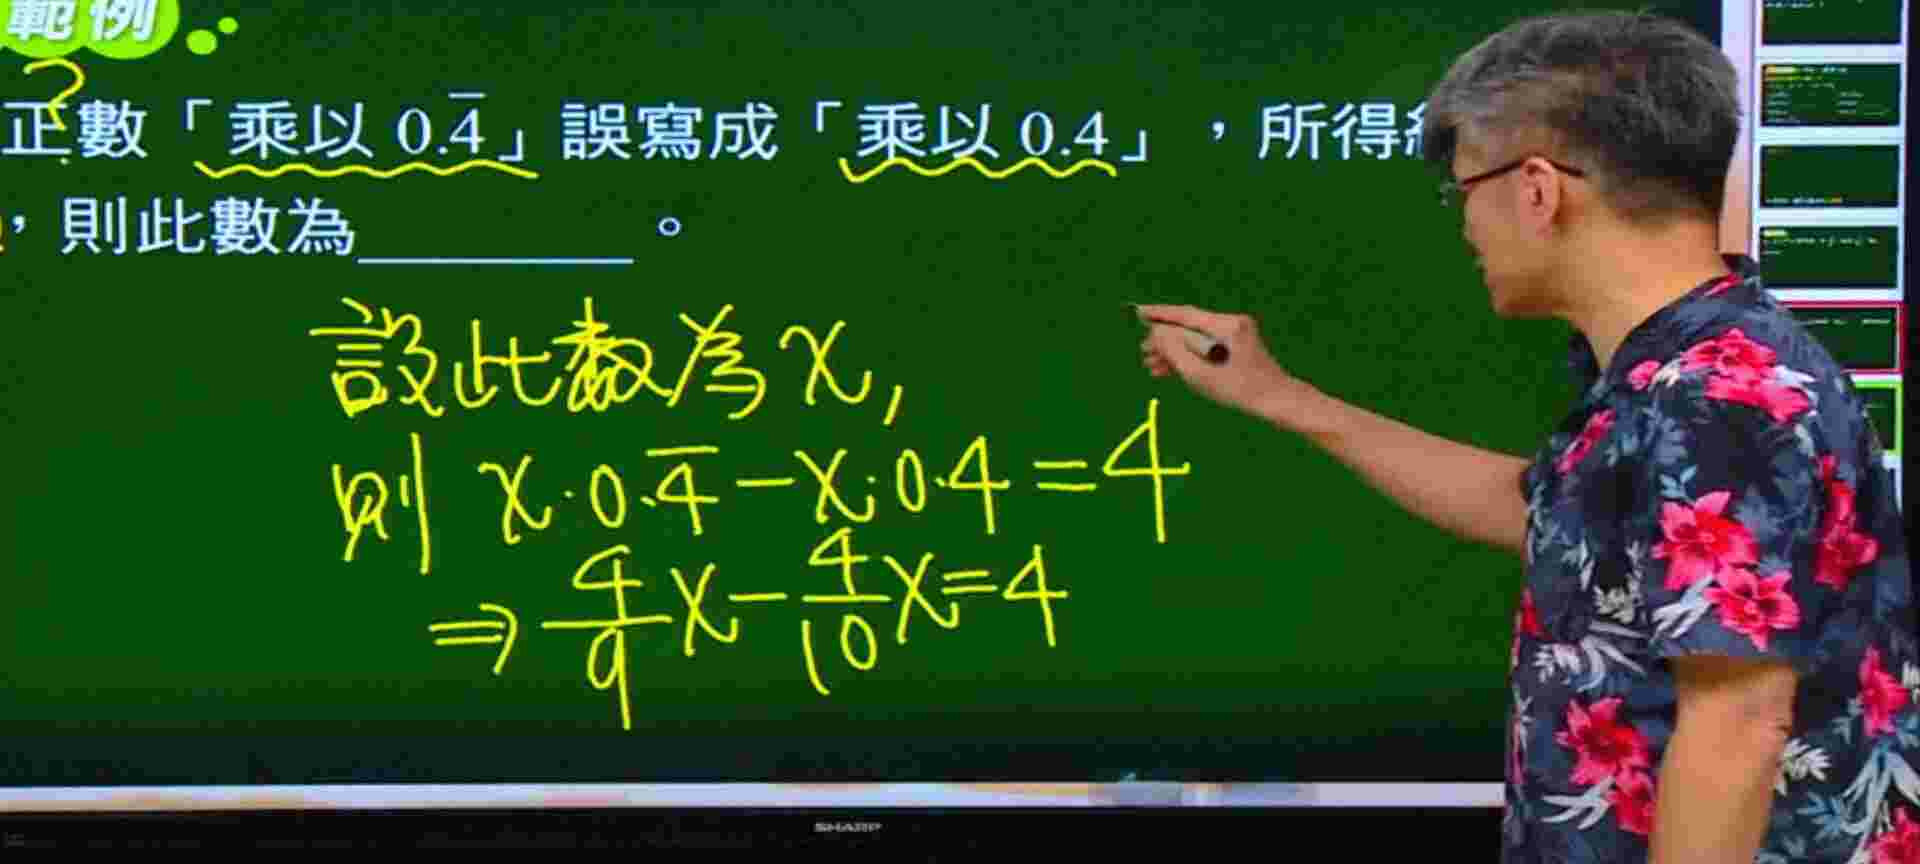 範例
?
正數「乘以 0.4̅」誤寫成「乘以 0.4」,所得
,則此數為______。
設此數為 x,
則 x·0.4̅－x·0.4＝4
⇒ 4/9 x－4/10 x＝4
SHARP